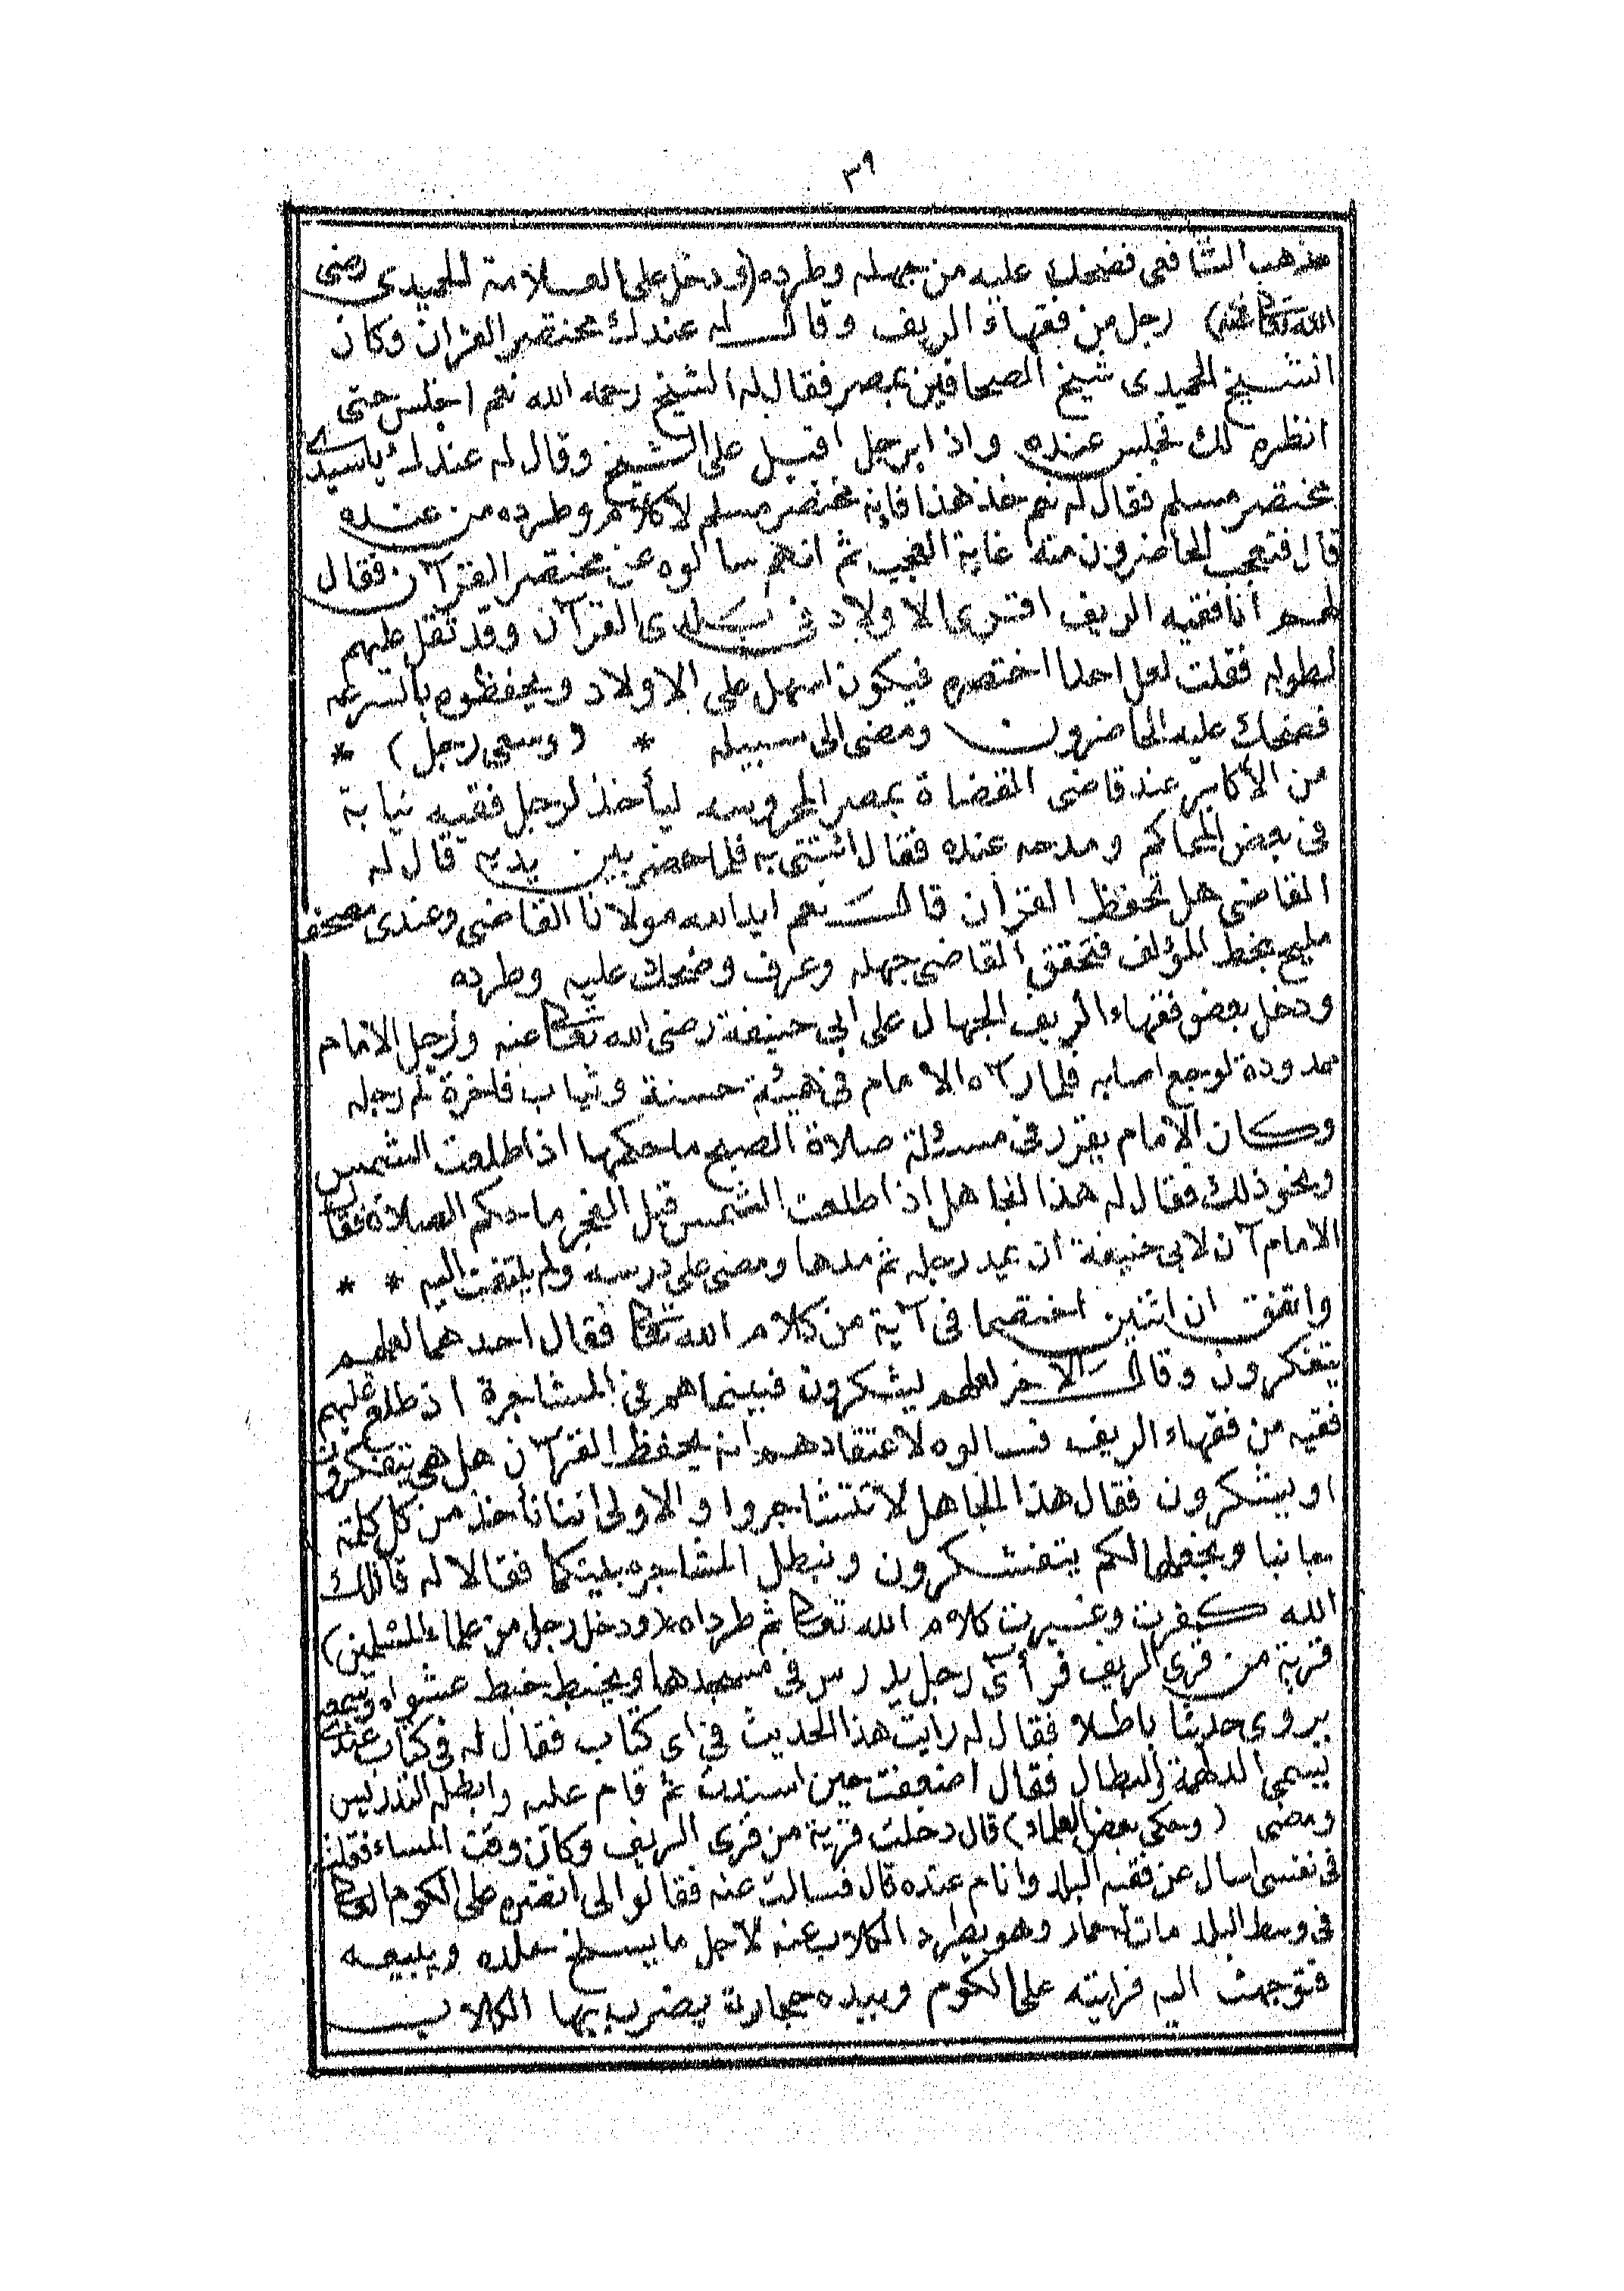 ٣٩
مذهب الشافعى فضحك عليه من جهله وطرده (ودخل على العلامة الحميدى رضى
الله تعالى عنه) رجل من فقهاء الريف وقال له عندك مختصر القران وكان
الشيخ الحميدى شيخ الصحافين بمصر فقال له الشيخ رحمه الله نعم اجلس حتى
انظره لك فجلس عنده واذا برجل اقبل على الشيخ وقال له عندك ياسيدى
مختصر مسلم فقال له نعم خذ هذا فانه مختصر مسلم وطرده من عنده
قال فتعجب الحاضرون منه غاية العجب ثم انهم سالوه عن مختصر القرآن فقال
لهم أنا فقيه الريف اقرى الاولاد فى بلدى القرآن وقد ثقل عليهم
لطوله فقلت لعل احدا اختصره فيكون اسهل على الاولاد ويحفظوه بالسرعه
فضحك عليه الحاضرون ومضى الى سبيله * (وسعى رجل) *
من الأكابر عند قاضى القضاة بمصر المحروسه ليأخذ لرجل فقيه نيابة
فى بعض المحاكم ومدحه عنده فقال ائتنى به فلما حضر بين يديه قال له
القاضى هل تحفظ القرآن قال نعم ايد الله مولانا القاضى وعندى مصحفا
مليح بخط المؤلف فتحقق القاضى جهله وعرف وضحك عليه وطرده
ودخل بعض فقهاء الريف الجهال على ابى حنيفة رضى الله تعالى عنه ورجل الامام
ممدودة لوجع اصابه فلما رآه الامام فى هيئة حسنة وثياب فاخرة لم رجله
وكان الامام يقرر فى مسئلة صلاة الصبح ما حكمها اذا طلعت الشمس
ونحو ذلك فقال له هذا الجاهل اذا طلعت الشمس قبل الفجر ما حكم الصلاة فقال
الامام آن لابى حنيفة ان يمد رجله ثم مدها ومضى على درسه ولم يلتفت اليه * *
واتفق ان اثنين اختصما فى آية من كلام الله تعالى فقال احدهما لعلهم
يتفكرون وقال الآخر لعلهم يشكرون فبينما هم فى المشاجرة اذ طلع عليهم
فقيه من فقهاء الريف فسالوه لاعتقادهم انه يحفظ القرآن هل هى يتفكرون
او يشكرون فقال هذا الجاهل لا تتشاجروا والاولى اننا نأخذ من كل كلمة
جانبا ونجعلها لكم يتفشكرون ونبطل المشاجره بينكما فقالا له قاتلك
الله كفرت وغيرت كلام الله تعالى ثم طرداه (ودخل رجل من علماء المسلمين)
قرية من قرى الريف فرأى رجل يدرس فى مسجدها ويخبط خبط عشواء وسمعه
يروى حديثا باطلا فقال له رايت هذا الحديث فى اى كتاب فقال له فى كتاب عندى
يسمى الدلهمة والبطال فقال اضعفت حين اسندت ثم قام عليه وابطله التدريس
ومضى (وحكى بعض العلماء) قال دخلت قرية من قرى الريف وكان وقت المساء فقلت
فى نفسى اسال عن فقيه البلد وانام عنده قال فسالت عنه فقالوا لى انظره على الكوم العالى
فى وسط البلد مات له حمار وهو يطرد الكلاب عنه لاجل ما يسلخ جلده ويبيعه
فتوجهت اليه فرايته على الكوم وبيده حجارة يضرب بها الكلاب